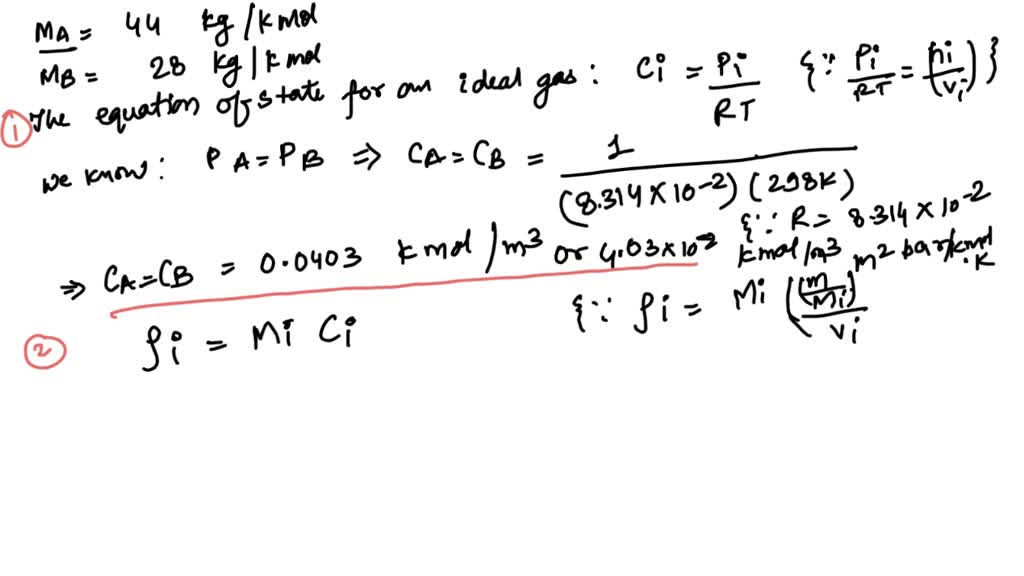 MA = 44 kg/kmol
MB = 28 kg/kmol
① The equation of state for an ideal gas: Ci = Pi/RT {∵ Pi/RT = ni/vi}
we know: PA = PB ⇒ CA = CB = 1/((8.314×10-2)(298K))
{∵ R = 8.314×10-2
⇒ CA=CB = 0.0403 kmol/m3 or 4.03×10-2 kmol/m3 m2 bar/kmol.K
② ρi = Mi Ci {∵ ρi = Mi (m/Mi)/vi